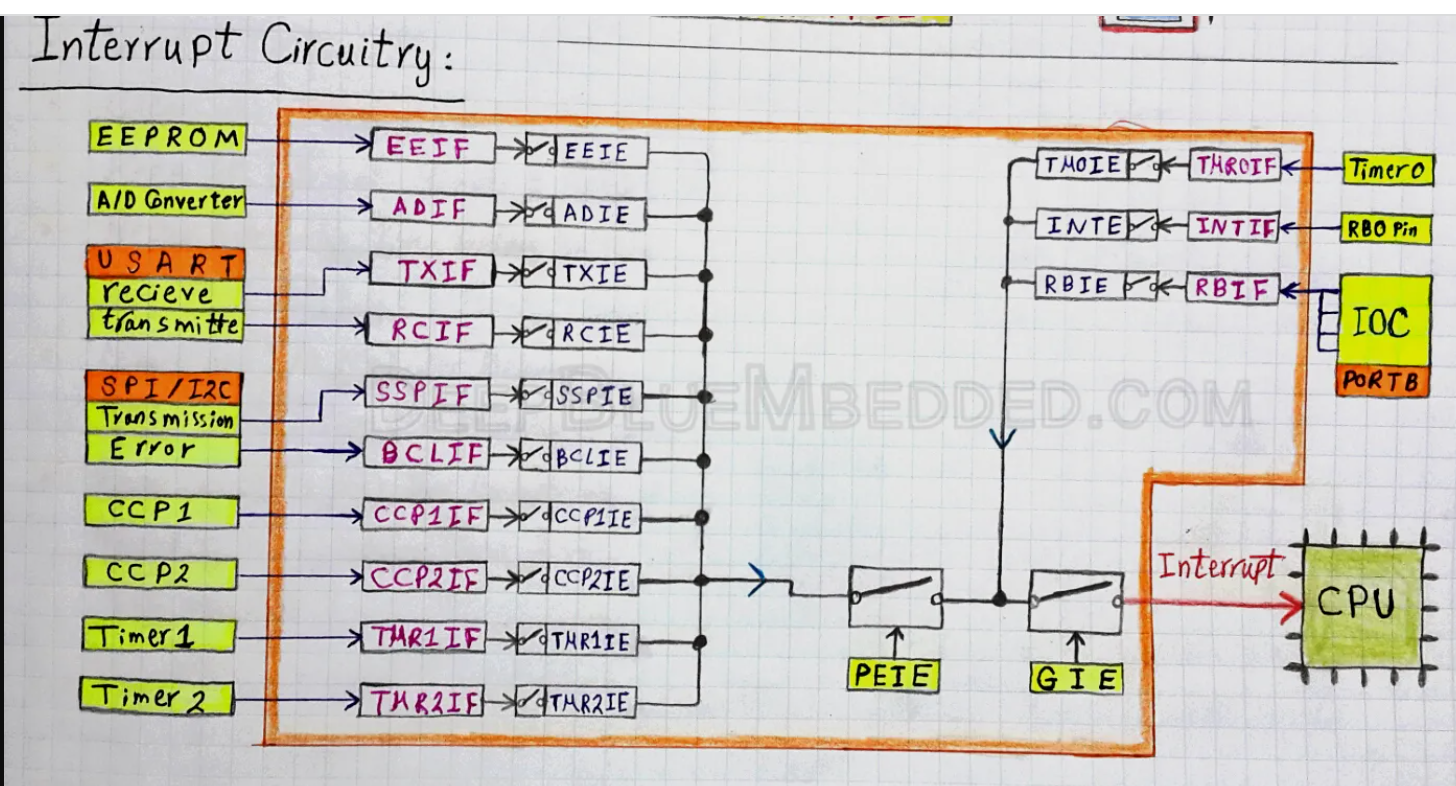 Interrupt Circuitry:
EEPROM
EEIF
EEIE
A/D Converter
ADIF
ADIE
USART
recieve
transmitte
TXIF
TXIE
RCIF
RCIE
SPI/I2C
Transmission
Error
SSPIF
SSPIE
BCLIF
BCLIE
CCP1
CCP1IF
CCP1IE
CCP2
CCP2IF
CCP2IE
Timer1
TMR1IF
TMR1IE
Timer2
TMR2IF
TMR2IE
TMOIE
TMROIF
Timer0
INTE
INTIF
RBO Pin
RBIE
RBIF
IOC
PORTB
DEEPBLUEMBEDDED.COM
PEIE
GIE
Interrupt
CPU